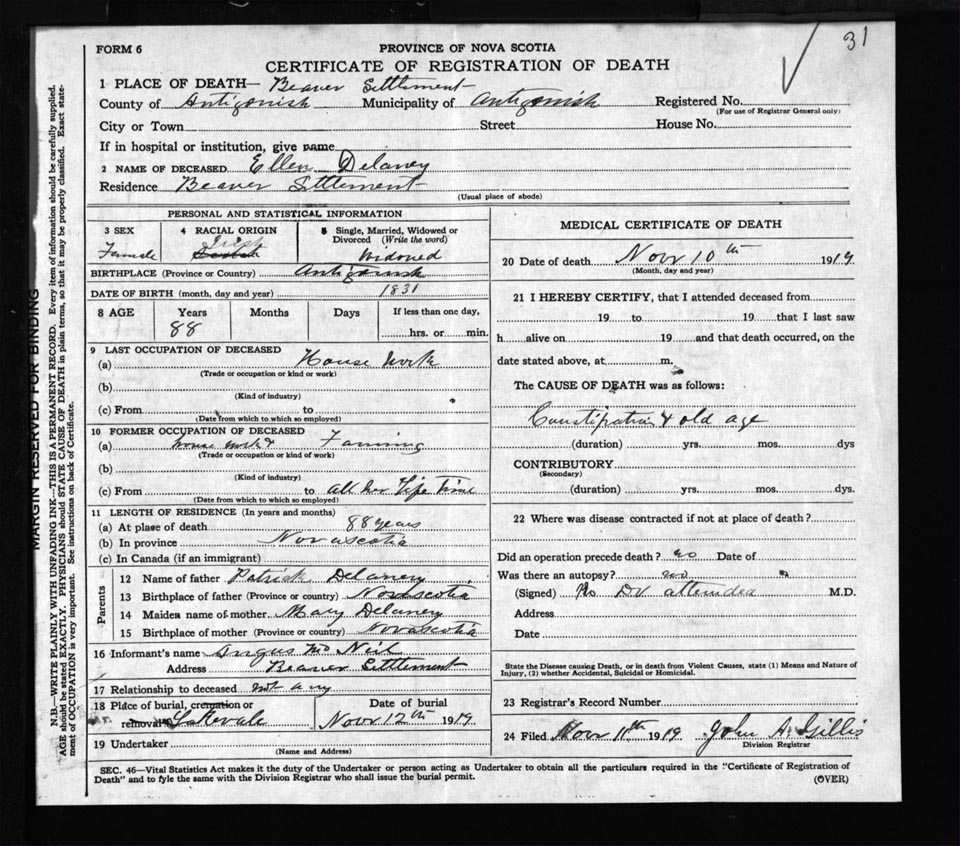 31
FORM 6
PROVINCE OF NOVA SCOTIA
CERTIFICATE OF REGISTRATION OF DEATH
1 PLACE OF DEATH— Beaver Settlement
County of Antigonish Municipality of Antigonish Registered No.
(For use of Registrar General only)
City or Town Street House No.
If in hospital or institution, give name
2 NAME OF DECEASED Ellen Delaney
Residence Beaver Settlement
(Usual place of abode)
PERSONAL AND STATISTICAL INFORMATION
3 SEX 4 RACIAL ORIGIN 5 Single, Married, Widowed or Divorced (Write the word)
Female Irish Scotch Widowed
BIRTHPLACE (Province or Country) Antigonish
DATE OF BIRTH (month, day and year) 1831
8 AGE Years Months Days If less than one day,
88 hrs. or min.
9 LAST OCCUPATION OF DECEASED
(a) House Work
(Trade or occupation or kind or work)
(b)
(Kind of industry)
(c) From to
(Date from which to which so employed)
10 FORMER OCCUPATION OF DECEASED
(a) house work & Farming
(Trade or occupation or kind or work)
(b)
(Kind of industry)
(c) From to all her Life Time
(Date from which to which so employed)
11 LENGTH OF RESIDENCE (In years and months)
(a) At place of death 88 years
(b) In province Novascotia
(c) In Canada (if an immigrant)
Parents
12 Name of father Patrick Delaney
13 Birthplace of father (Province or country) Novascotia
14 Maiden name of mother Mary Delaney
15 Birthplace of mother (Province or country) Novascotia
16 Informant's name Angus Mc Neil
Address Beaver Settlement
17 Relationship to deceased not any
18 Place of burial, cremation or removal Lakevale
Date of burial
Novr 12th 1919.
19 Undertaker
(Name and Address)
MEDICAL CERTIFICATE OF DEATH
20 Date of death Novr 10th 1919
(Month, day and year)
21 I HEREBY CERTIFY, that I attended deceased from
19 to 19 that I last saw
h alive on 19 and that death occurred, on the
date stated above, at m.
The CAUSE OF DEATH was as follows:
Constipation & old age
(duration) yrs. mos. dys
CONTRIBUTORY
(Secondary)
(duration) yrs. mos. dys.
22 Where was disease contracted if not at place of death?
Did an operation precede death? no Date of
Was there an autopsy? no
(Signed) No Dr attended M.D.
Address
Date
State the Disease causing Death, or in death from Violent Causes, state (1) Means and Nature of
Injury, (2) whether Accidental, Suicidal or Homicidal.
23 Registrar's Record Number
24 Filed Novr 11th 1919 John A. Gillis
Division Registrar
SEC. 46—Vital Statistics Act makes it the duty of the Undertaker or person acting as Undertaker to obtain all the particulars required in the "Certificate of Registration of
Death" and to file the same with the Division Registrar who shall issue the burial permit.
(OVER)
MARGIN RESERVED FOR BINDING
N.B.—WRITE PLAINLY WITH UNFADING INK—THIS IS A PERMANENT RECORD. Every item of information should be carefully supplied.
AGE should be stated EXACTLY. PHYSICIANS should STATE CAUSE OF DEATH in plain terms, so that it may be properly classified. Exact state-
ment of OCCUPATION is very important. See instructions on back of Certificate.